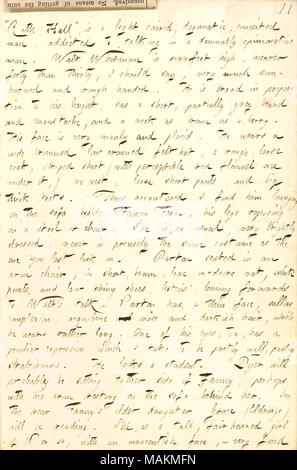 11
"Ruth Hall" is a light haired, dogmatic, conceited
man addicted to talking in a damnably opinionative
man Walt Whitman is six feet high, nearer
forty than thirty, I should say, very much sun-
burned and rough handed. He is broad in propor-
tion to his height, has a short, partially grey beard
and moustache, and a neck as brown as a berry.
His face is very manly and placid. He wears a
wide brimmed low crowned felt hat a rough, loose
coat, striped shirt with perceptible red flannel one
under it,) no vest, loose short pants, and big
thick boots. Thus accoutred I find him lounging
on the sofa beside Fanny Fern, his legs reposing
on a stool or chair. She is, as usual, very brightly
dressed, never in precisely the same costume as the
one you last her in. Parton seated in an
arm chair, in short, brown, loose in-doors coat, white
pants, and low shiny shoes, listens' leaning forwards
to Walt's talk. Parton has a thin face, sallow
complexion aquiline nose and darkish hair, which
he wears rather long. One of his eyes, too has a
peculiar expression which I take to be partly
strabismus. He looks a student. Dyer will
probably be sitting t'other side of Fanny, perhaps
with his arm resting on the sofa behind her. In
the rear Fanny's older daughter Grace (Eldredge)
will be reading. She is a tall, fair haired girl
of 16 or so, with an face, very fond
alamy
Image ID: MAKMFN
www.alamy.com